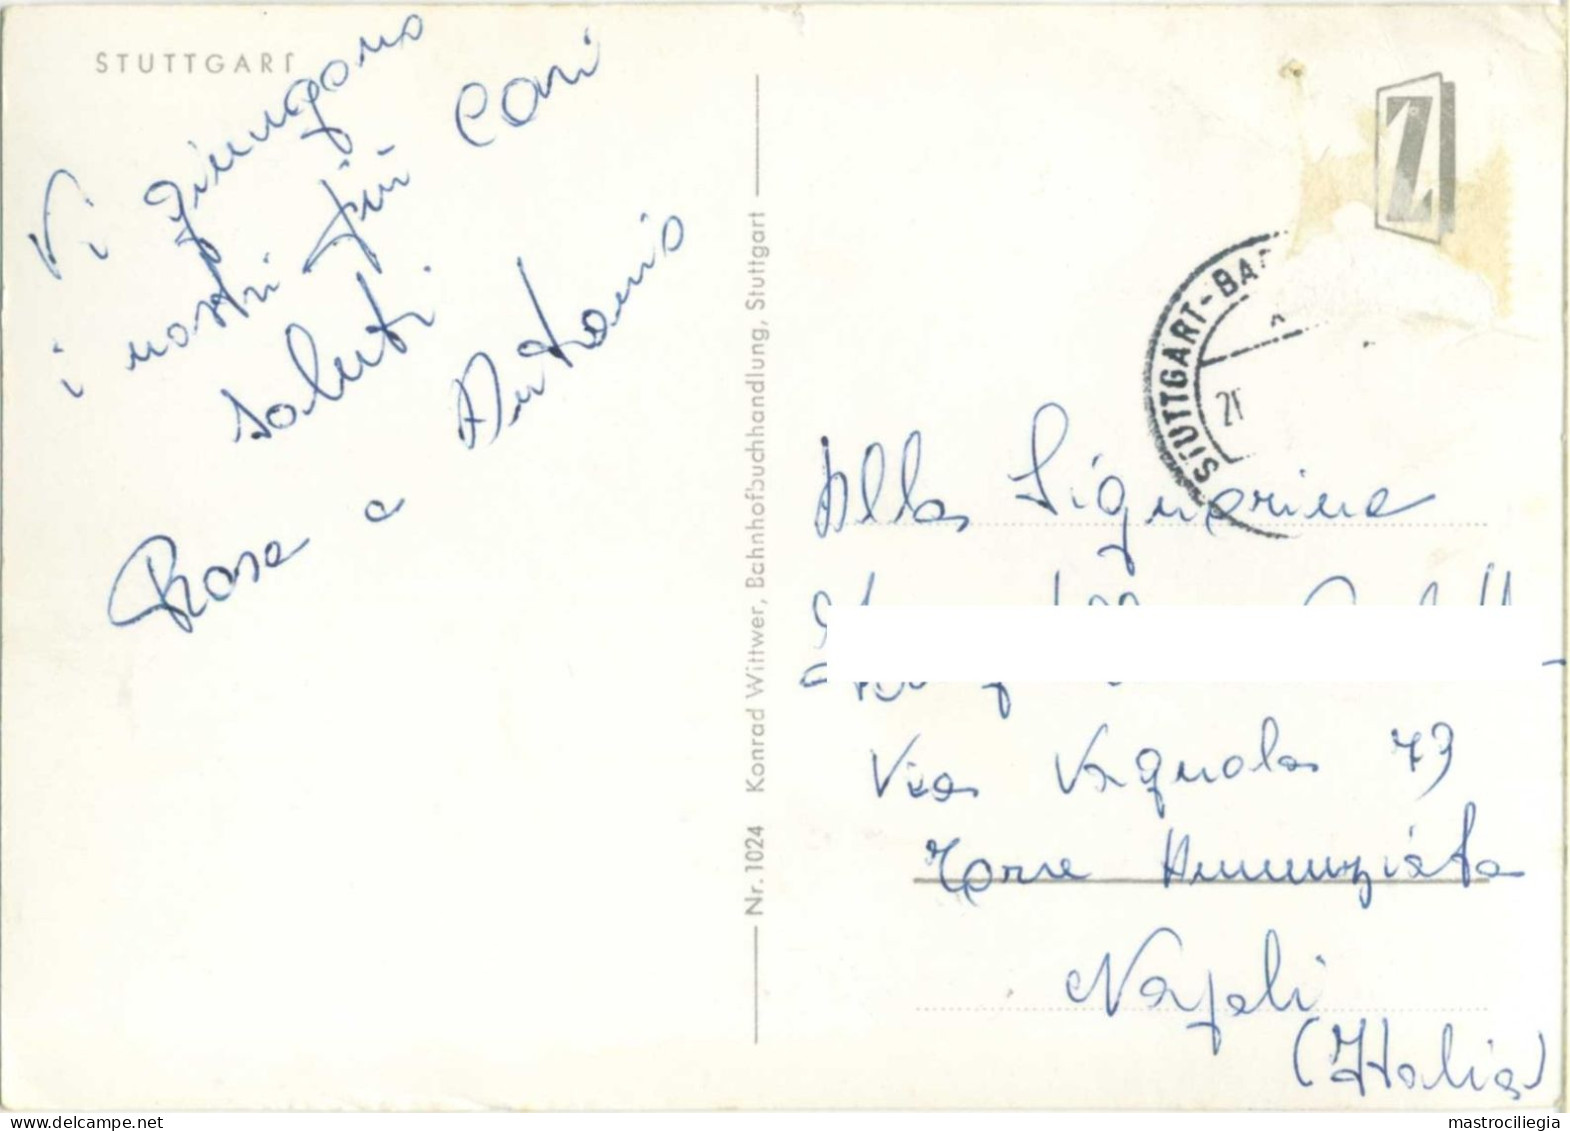 STUTTGART
Vi giungono
i nostri più cari
saluti
Rosa e Antonio
Nr. 1024 Konrad Wittwer, Bahnhofbuchhandlung, Stuttgart
Z
STUTTGART-BAD
21
Alla Signorina
Via Vagnola 73
Torre Annunziata
Napoli
(Italia)
mastrociliegia